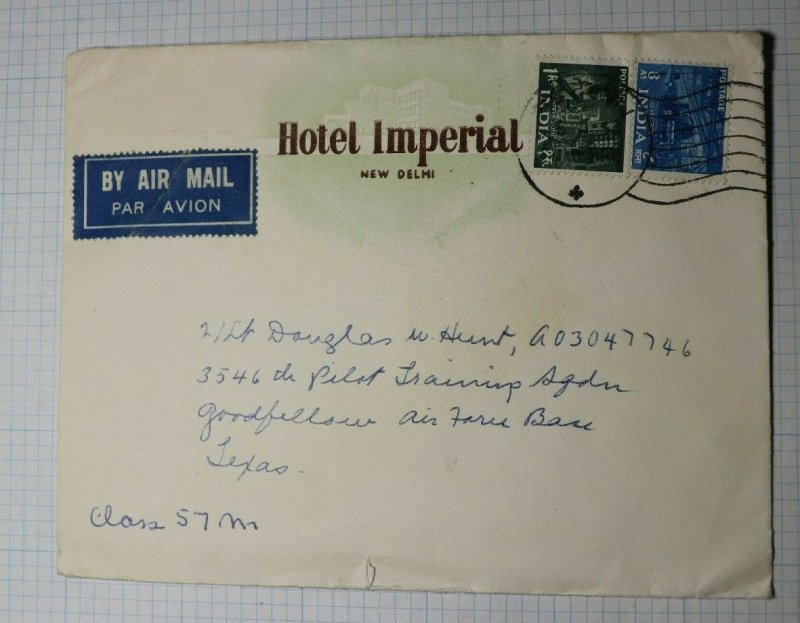 Hotel Imperial
NEW DELHI
BY AIR MAIL
PAR AVION
POSTAGE
1 Re
INDIA
POSTAGE
8 AS
INDIA
2/Lt Douglas W Hunt, A03047746
3546 th Pilot Training Sqdn
Goodfellow Air Force Base
Texas.
Class 57 M